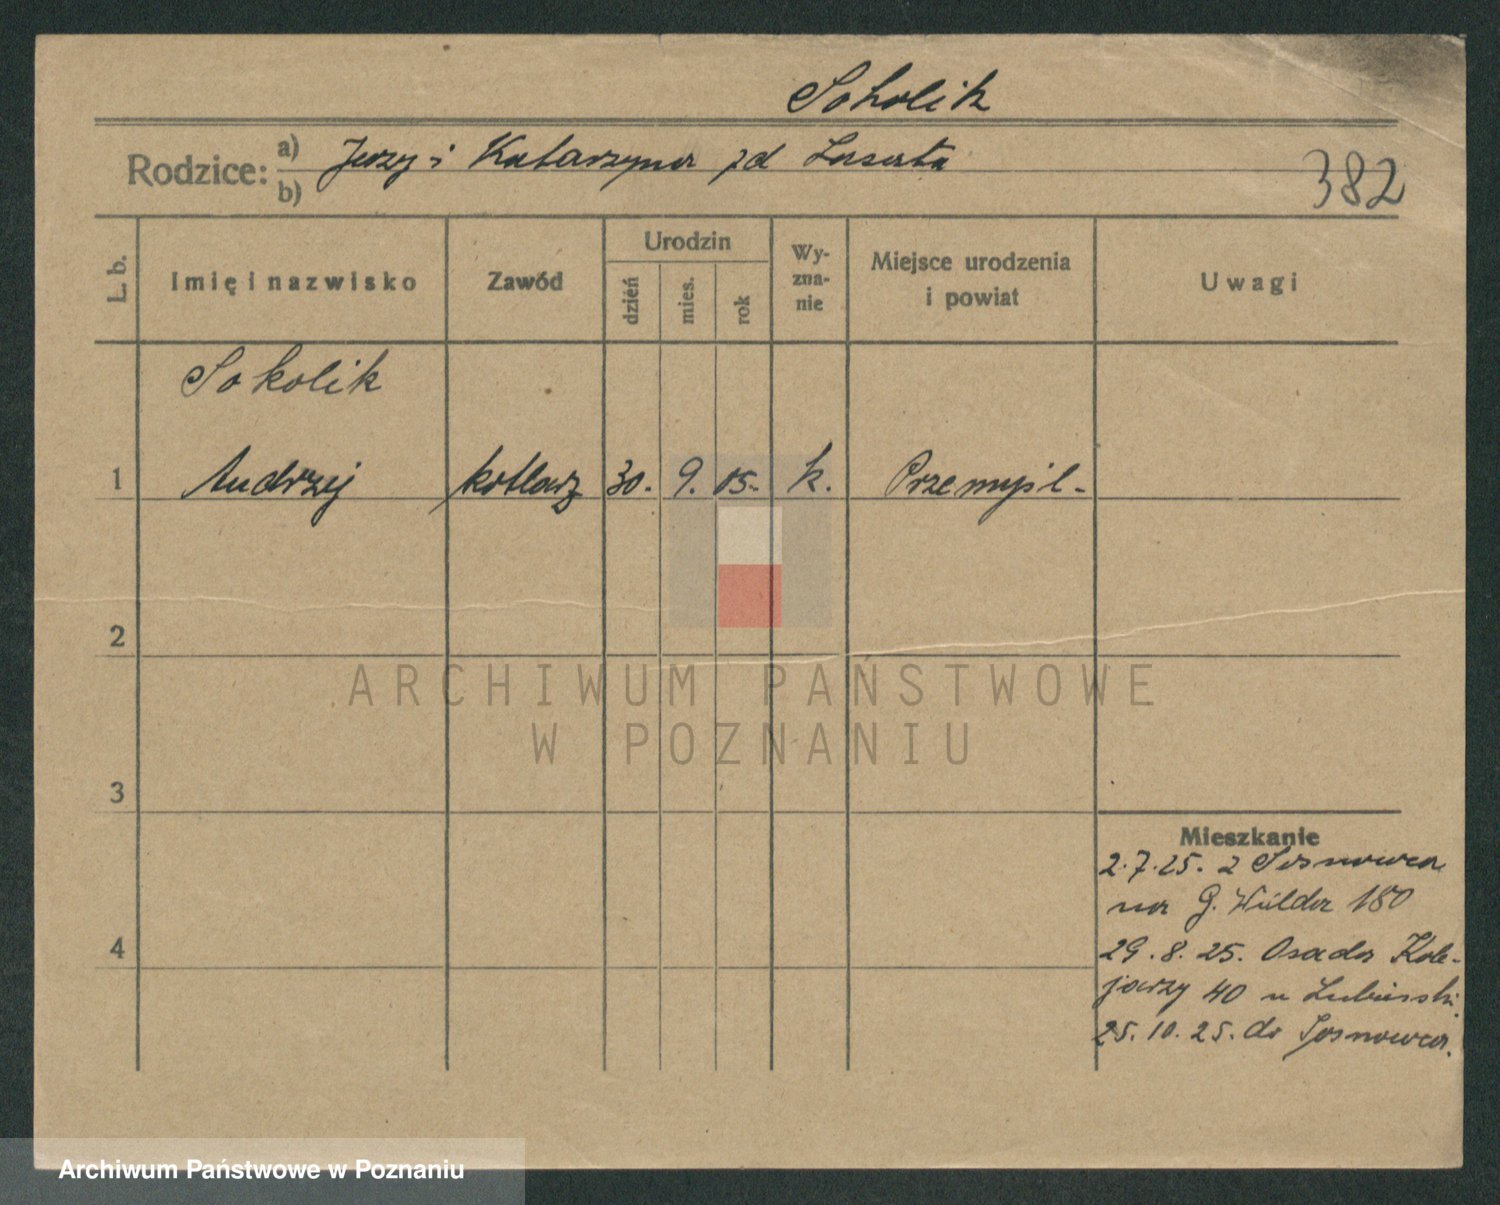 Sokolik
Rodzice: a) Jerzy i Katarzyna zd
b)
382
L. b. Imię i nazwisko Zawód Urodzin dzień mies. rok Wyznanie Miejsce urodzenia i powiat Uwagi
Sokolik
1 Andrzej kotlarz 30. 9. 05. k. Przemyśl-
2
3
4
Mieszkanie
2.7.25. z Sosnowca
na G. Wilda 180
29.8.25. Osada Kole-
jarzy 40 u
25.10.25. do Sosnowca.
ARCHIWUM PAŃSTWOWE
W POZNANIU
Archiwum Państwowe w Poznaniu